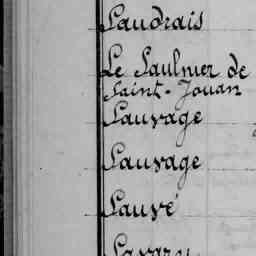 Saudrais
Le Saulnier de
Saint-Jouan
Sauvage
Sauvage
Sauvé
Savary